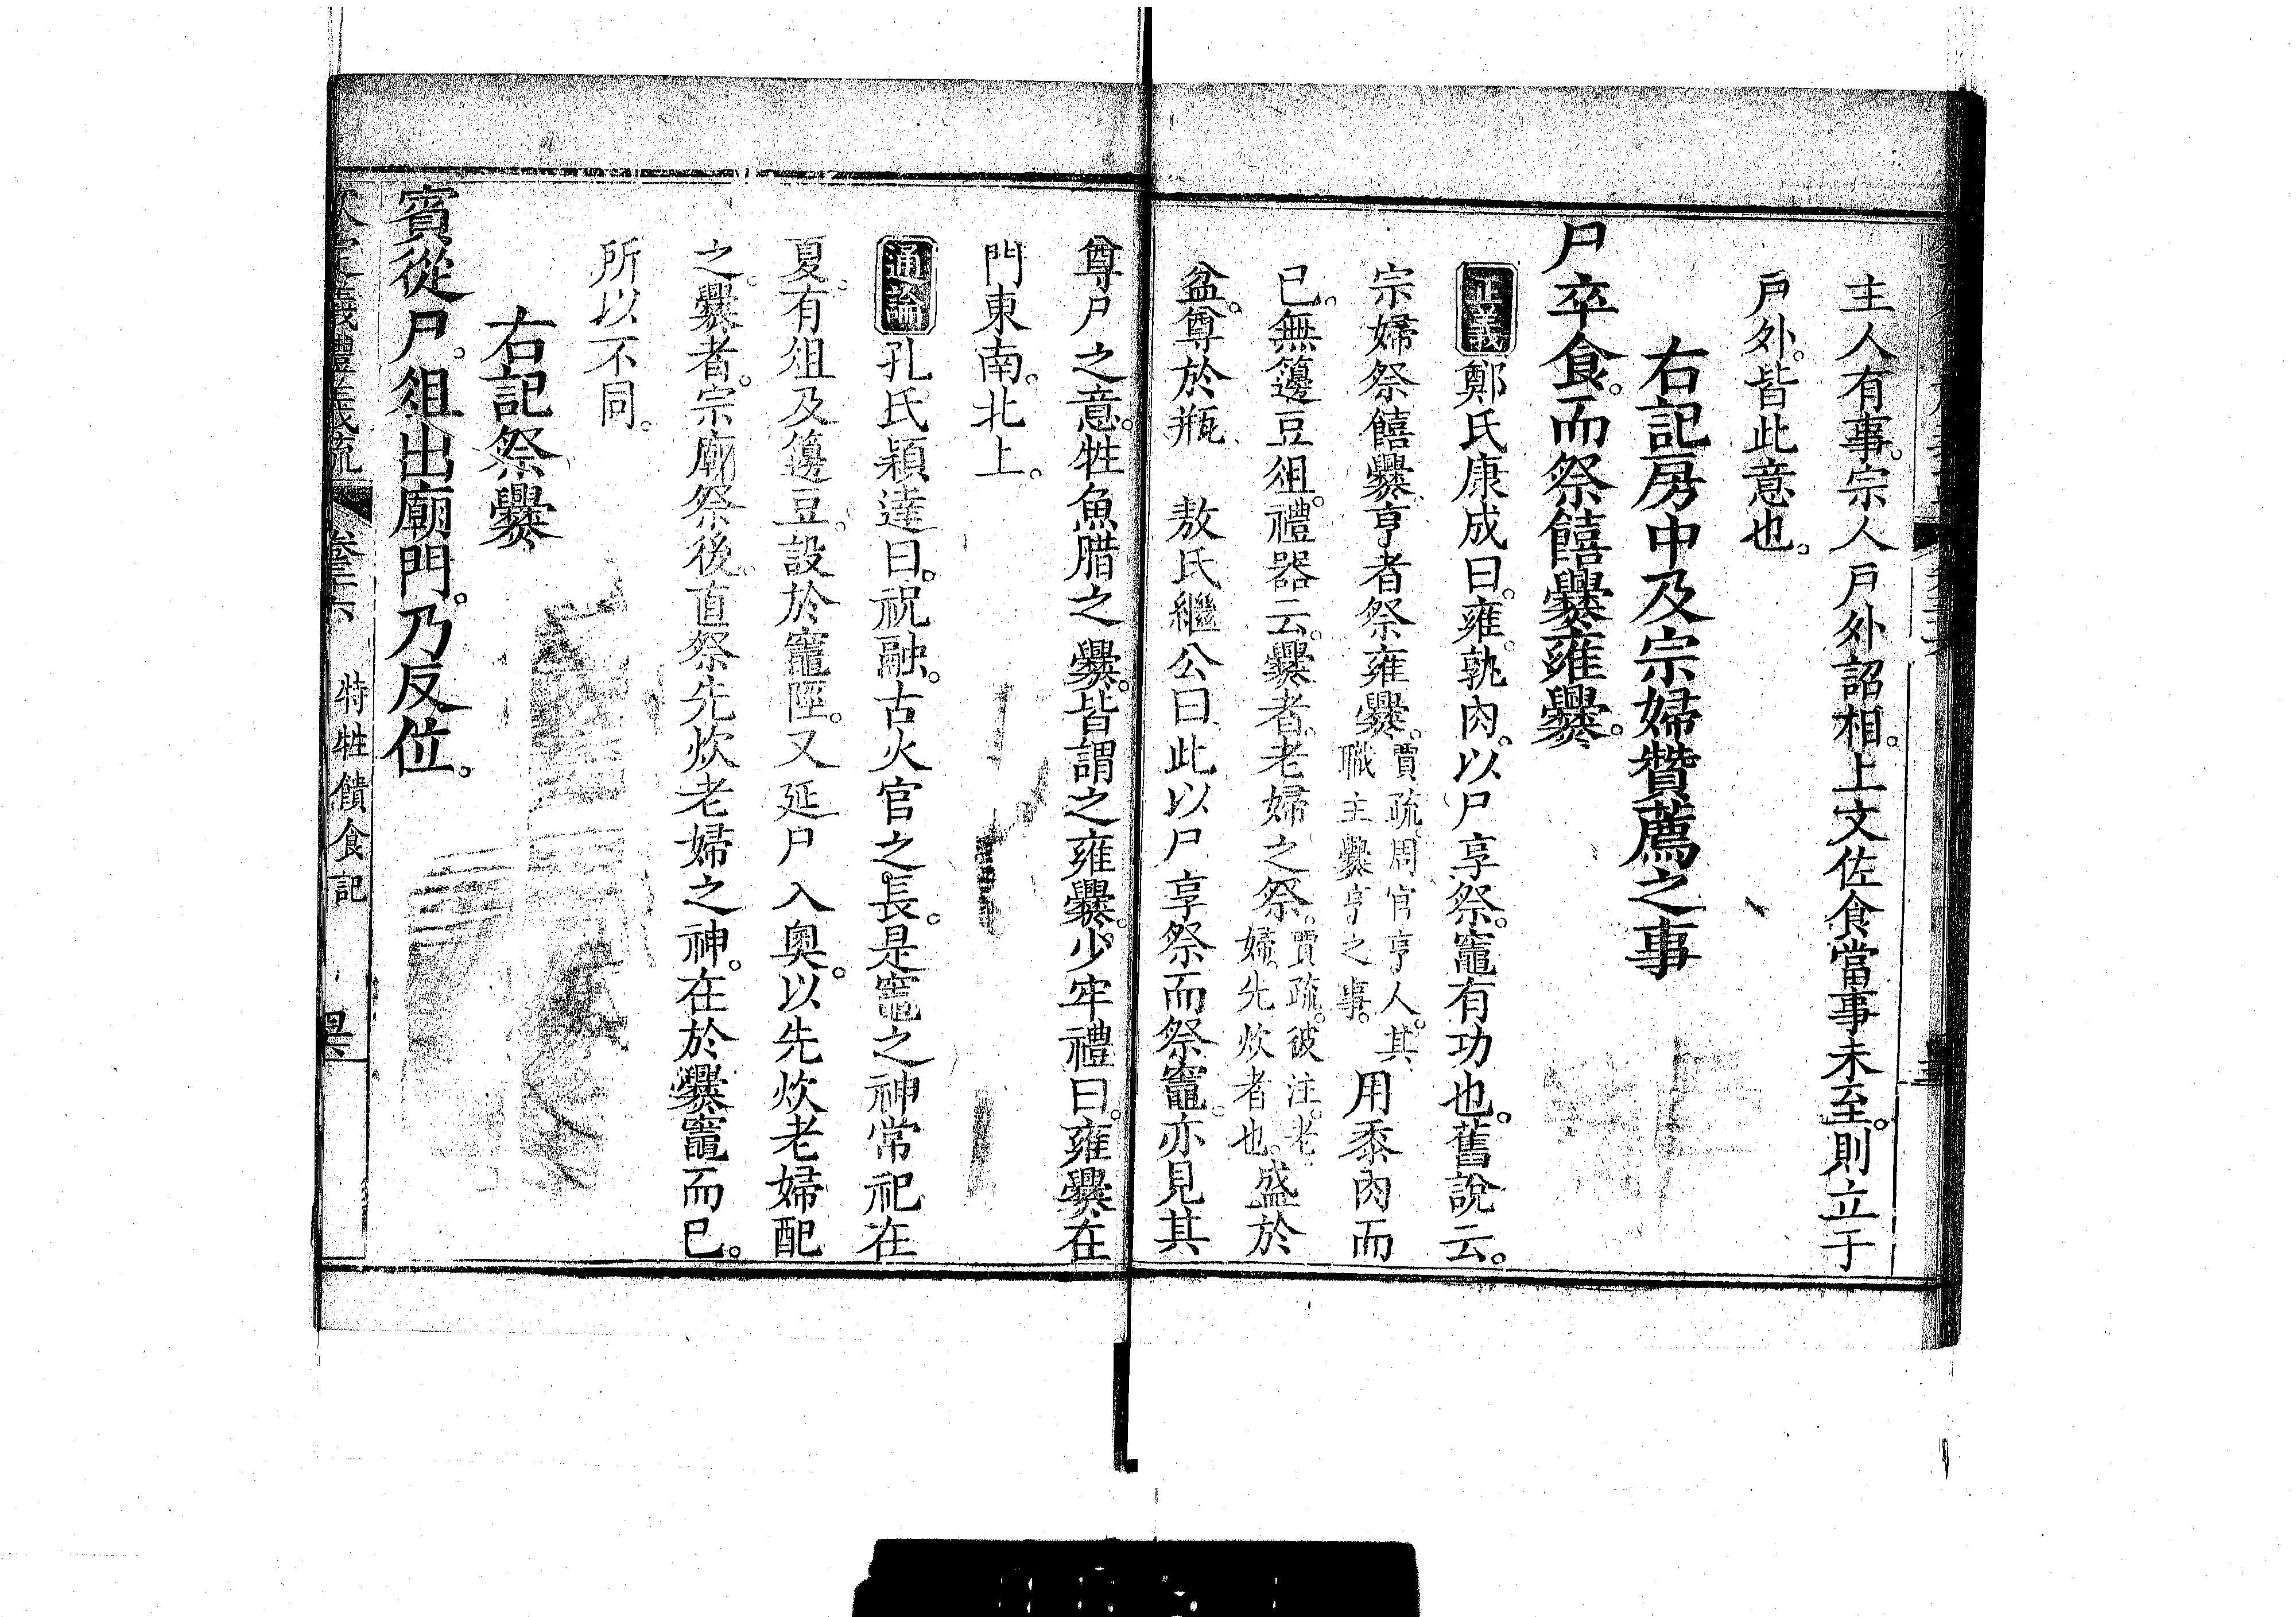 主人有事。宗人戶外詔相。上文佐食當事未至。則立于
戶外。皆此意也。
右記房中及宗婦贊薦之事
尸卒食。而祭饎爨雍爨。
正義鄭氏康成曰。雍。孰肉。以尸享祭。竈有功也。舊說云。
宗婦祭饎爨。亨者祭雍爨。賈疏。周官亨人。其職主爨亨之事。用黍肉而
已。無籩豆俎。禮器云。爨者。老婦之祭。賈疏。彼注。老婦。先炊者也。盛於
盆。尊於瓶 敖氏繼公曰此以尸享祭而祭竈。亦見其
尊尸之意。牲魚腊之爨。皆謂之雍爨。少牢禮曰。雍爨在
門東南。北上。
通論孔氏穎達曰。祝融。古火官之長。是竈之神常祀在
夏。有俎及籩豆。設於竈陘。又延尸入奧。以先炊老婦配
之。爨者。宗廟祭後。直祭先炊老婦之神。在於爨竈而已。
所以不同。
右記祭爨
賓從尸。俎出廟門。乃反位。
欽定儀禮義疏 卷三六 特牲饋食記